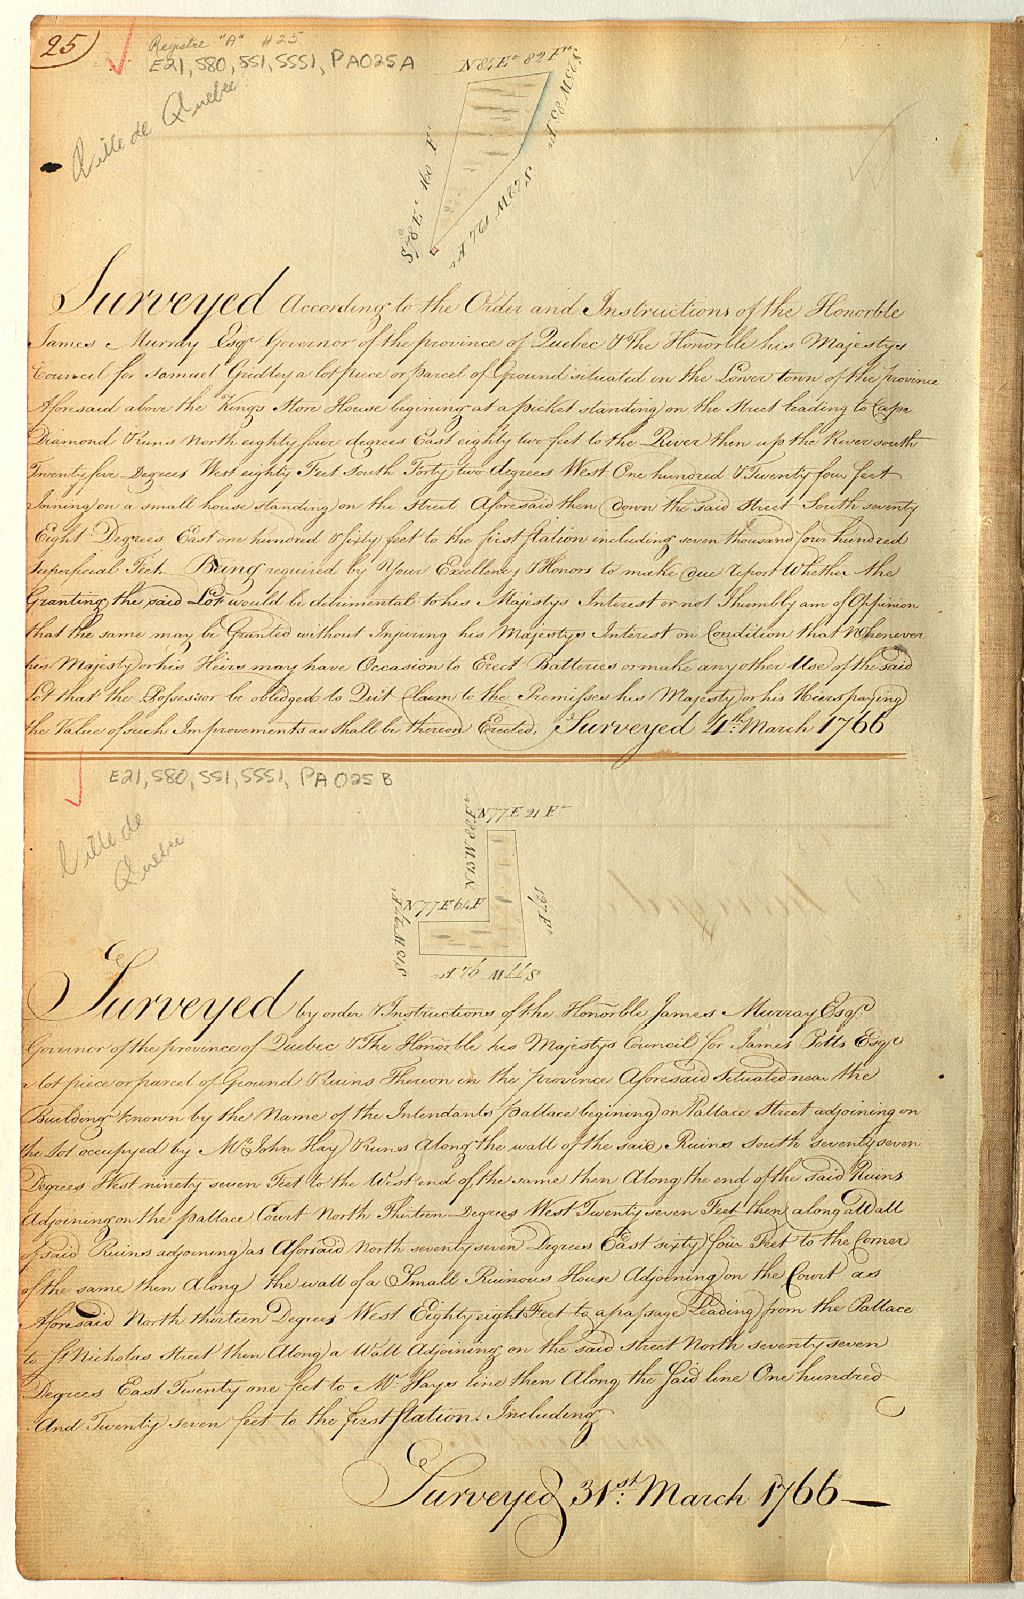 25)
Registre "A" #25
E21, S80, SS1, SSS1, PA025A
Ville de Quebec
N 84 E 82 Ft
S 25 W 80 Ft
S 42 W 124 Ft
S 78 E 160 Ft
Surveyed According to the Order and Instructions of the Honorble
James Murray Esqr Governor of the province of Quebec & The Honorble his Majestys
Council for Samuel Gridley a lot piece or parcel of Ground situated in the Lower town of the province
Aforesaid above the Kings Store House begining at a picket standing on the Street leading to Cape
Diamond & Runs North eighty four degrees East eighty two feet to the River then up the River south
Twenty five Degrees West eighty Feet South Forty two degrees West One hundred & Twenty four feet
Joining on a small house standing on the Street Aforesaid then down the said Street South seventy
Eight Degrees East one hundred & sixty feet to the first station including seven thousand four hundred
Superficial Feet. Being required by Your Excellency & Honors to make due report Whether the
Granting the said Lot would be detrimental to his Majestys Interest or not I humbly am of Oppinion
that the same may be Granted without Injuring his Majestys Interest on Condition that Whenever
his Majesty or his Heirs may have Occasion to Erect Batteries or make any other Use of the said
Lot that the Possessor be obliedged to Quit Claim to the Premisses his Majesty or his Heirs paying
the Value of such Improvements as shall be thereon Erected. Surveyed 4th March 1766
E21, S80, SS1, SSS1, PA025B
Ville de
Quebec
N 77 E 21 Ft
N 13 W 88 Ft
N 77 E 64 F
S 77 W 97 Ft
Surveyed by order & Instructions of the Honorble James Murray Esqr
Governor of the province of Quebec & The Honorble his Majestys Council for James Potts Esqr
a lot piece or parcel of Ground & Ruins Thereon in the province Aforesaid Situated near the
Building known by the Name of the Intendants pallace begining on Pallace Street adjoining on
the Lot occupyed by Mr John Hay & Runs Along the wall of the said Ruins South seventy seven
Degrees West ninety seven Feet to the West end of the same then Along the end of the said Ruins
Adjoining on the pallace Court North Thirteen Degrees West Twenty seven Feet then along a Wall
of said Ruins adjoining as Aforsaid North seventy seven Degrees East sixty four Feet to the Corner
of the same then Along the wall of a Small Ruinous House Adjoining on the Court as
Aforesaid North thirteen Degrees West Eighty eight Feet to a passage Leading from the Pallace
to St Nicholas Street then Along a Wall Adjoining on the said street North seventy seven
Degrees East Twenty one feet to Mr Hays line then Along the Said line One hundred
And Twenty seven feet to the first station. Including
Surveyed 31st March 1766